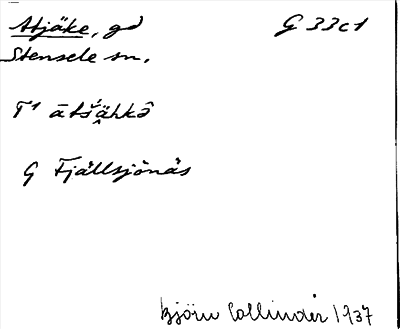 Atjäke, gd G 33c1
Stensele sn.
T¹ ātšä̭hkô
G Fjällsjönäs
Björn Collinder 1937